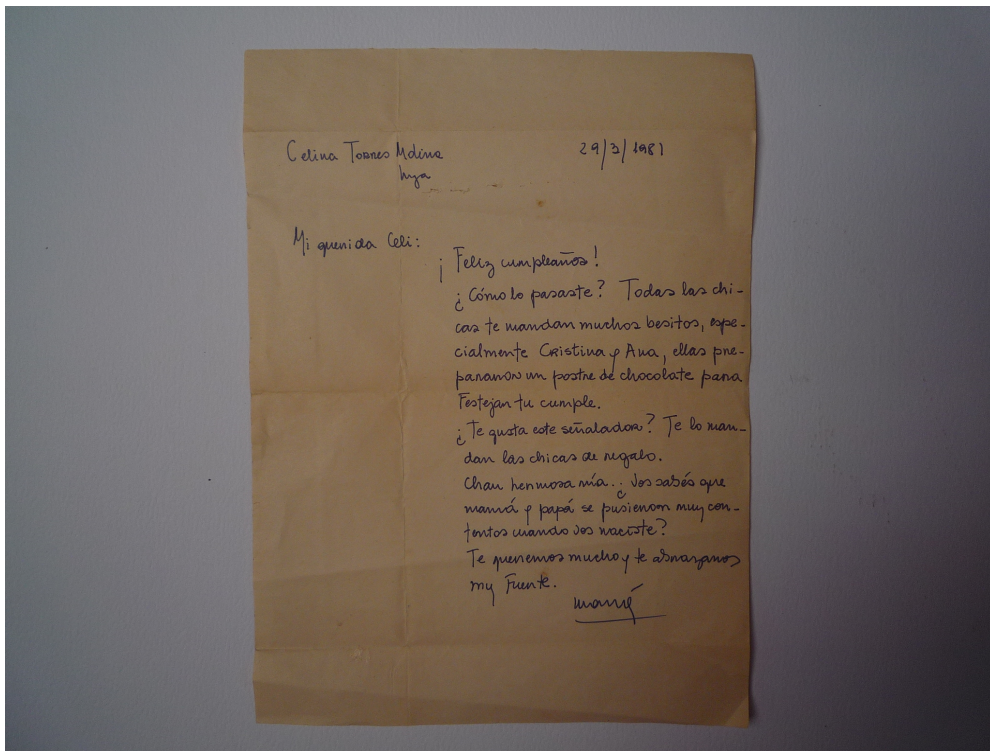 Celina Torres Molina 29/3/1981
hija
Mi querida Celi:
¡Feliz cumpleaños!
¿Cómo lo pasaste? Todas las chi-
cas te mandan muchos besitos, espe-
cialmente Cristina y Ana, ellas pre-
pararon un postre de chocolate para
Festejar tu cumple.
¿Te gusta este señalador? Te lo man-
dan las chicas de regalo.
Chau hermosa mía. ¿Vos sabés que
mamá y papá se pusieron muy con-
tentos cuando vos naciste?
Te queremos mucho y te abrazamos
muy Fuerte.
mamá